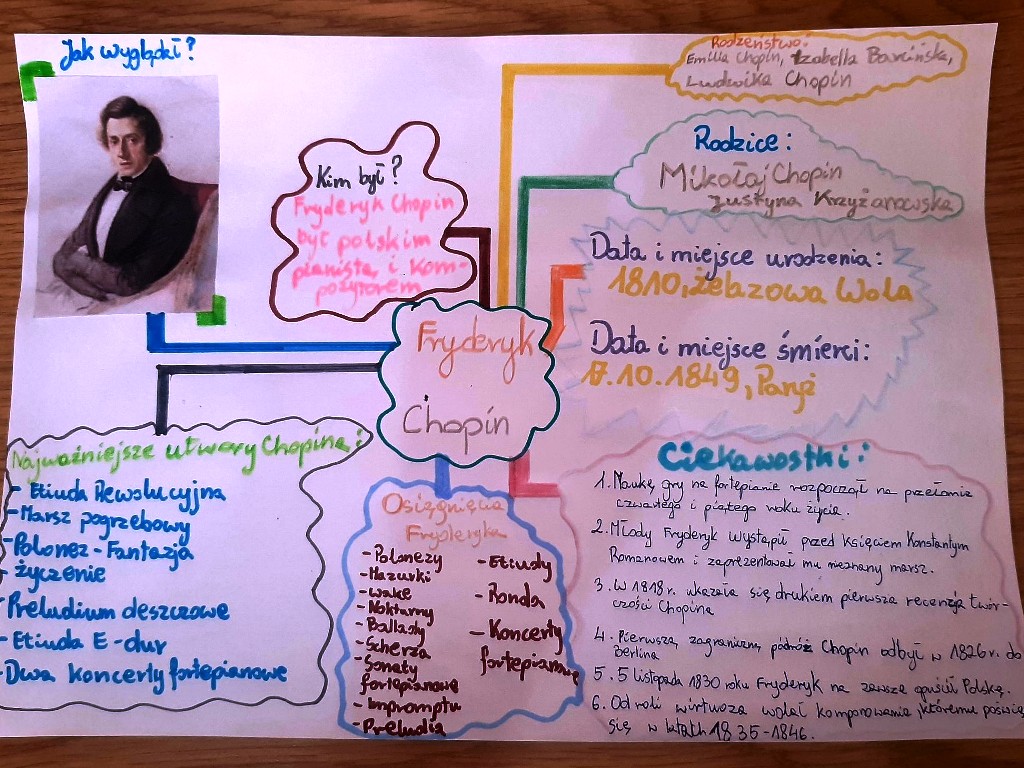 Jak wyglądał?
Rodzeństwo:
Emilia Chopin, Izabella Barcińska,
Ludwika Chopin
Rodzice:
Mikołaj Chopin
Justyna Krzyżanowska
Kim był?
Fryderyk Chopin
był polskim
pianistą i kom-
pozytorem
Data i miejsce urodzenia:
1810, Żelazowa Wola
Data i miejsce śmierci:
17.10.1849, Paryż
Fryderyk
Chopin
Najważniejsze utwory Chopina:
- Etiuda Rewolucyjna
- Marsz pogrzebowy
- Polonez-Fantazja
- życzenie
- Preludium deszczowe
- Etiuda E-dur
- Dwa koncerty fortepianowe
Osiągnięcia
Fryderyka
- Polonezy
- Mazurki
- walce
- Nokturny
- Ballady
- Scherza
- Sonaty
fortepianowe
- Impromptu
- Preludia
- Etiudy
- Ronda
- Koncerty
fortepianowe
Ciekawostki:
1. Naukę gry na fortepianie rozpoczął na przełomie
czwartego i piątego roku życia.
2. Młody Fryderyk wystąpił przed księciem Konstantym
Romanowem i zaprezentował mu nieznany marsz.
3. W 1818 r. ukazała się drukiem pierwsza recenzja twór-
czości Chopina
4. Pierwszą zagraniczną podróż Chopin odbył w 1826 r. do
Berlina
5. 5 listopada 1830 roku Fryderyk na zawsze opuścił Polskę.
6. Od roli wirtuoza wolał komponowanie, któremu poświę
się w latach 1835-1846.